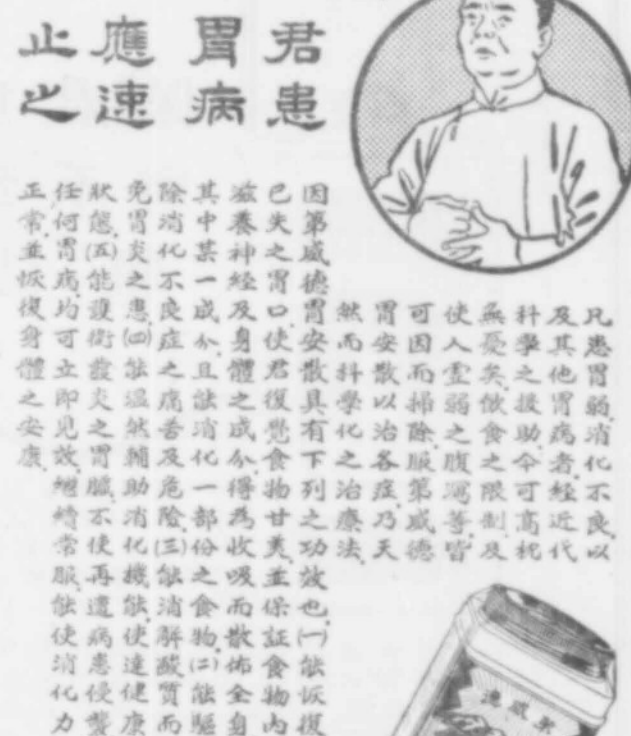 君患
胃病
應速
止之
凡患胃弱消化不良以
及其他胃病者經近代
科學之援助今可高枕
無憂矣飲食之限制及
使人虛弱之腹瀉等皆
可因而掃除服第威德
胃安散以治各症乃天
然而科學化之治療法
因第威德胃安散具有下列之功效也㈠能恢復
已失之胃口使君復覺食物甘美並保証食物內
滋養神經及身體之成分得為收吸而散佈全身
其中某一成分且能消化一部份之食物㈡能驅
除消化不良症之痛苦及危險㈢能消解酸質而
免胃炎之患㈣能溫然輔助消化機能使達健康
狀態㈤能護衛發炎之胃臟不使再遭病患侵襲
任何胃病均可立即見效繼續常服能使消化力
正常並恢復身體之安康